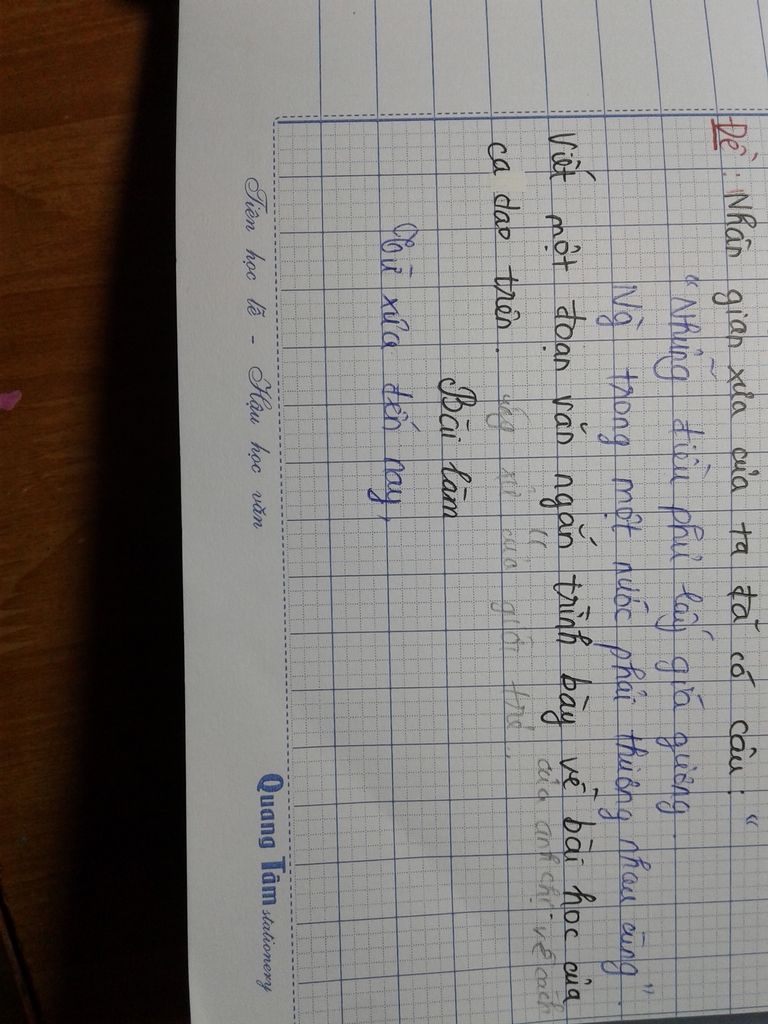 Đề: Nhân gian xưa của ta đã có câu: "
"Những điều phủ lấy giá gương
Ng trong một nước phải thương nhau cùng".
Viết một đoạn văn ngắn trình bày về bài học của
của anh chị về cách
ca dao trên. ứng xử của giới trẻ..
Bài làm
Từ xưa đến nay,
Tiên học lễ - Hậu học văn
Quang Tâm stationery